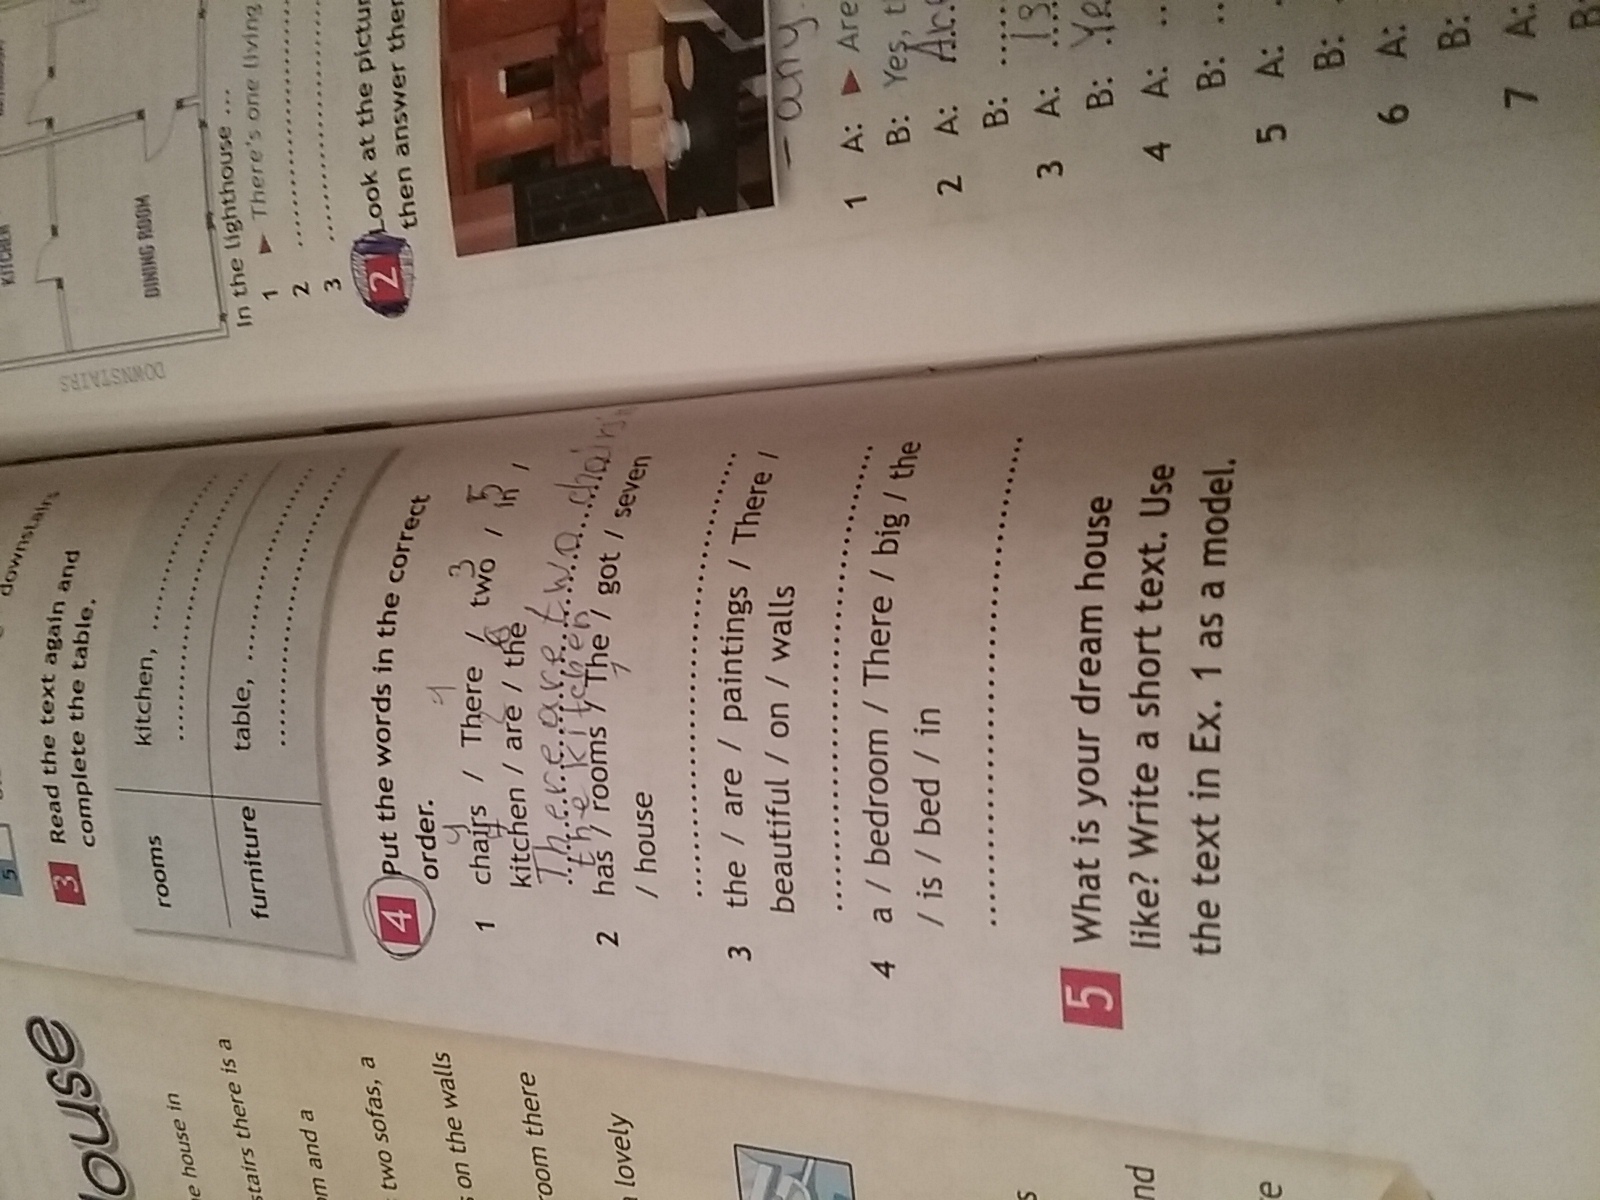 ouse
e house in
stairs there is a
m and a
two sofas, a
on the walls
room there
lovely
nd
5
downstairs
3 Read the text again and
complete the table.
rooms kitchen, ..............
..............
furniture table, ..............
..............
4 Put the words in the correct
order.
1 chairs / There / two / in /
4 1 3 5
kitchen / are / the
There are two chairs in
the kitchen
2 has / rooms / The / got / seven
/ house
..............
3 the / are / paintings / There /
beautiful / on / walls
..............
4 a / bedroom / There / big / the
/ is / bed / in
..............
5 What is your dream house
like? Write a short text. Use
the text in Ex. 1 as a model.
KITCHEN
DINING ROOM
DOWNSTAIRS
In the lighthouse ...
1 ► There's one living
2 ..............
3 ..............
2 Look at the pictur
then answer ther
- any
1 A: ► Are
B: Yes, t
2 A: Are
B: ......
3 A: Is
B: Ye
4 A: ..
B: ..
5 A: .
B:
6 A:
B:
7 A:
B: